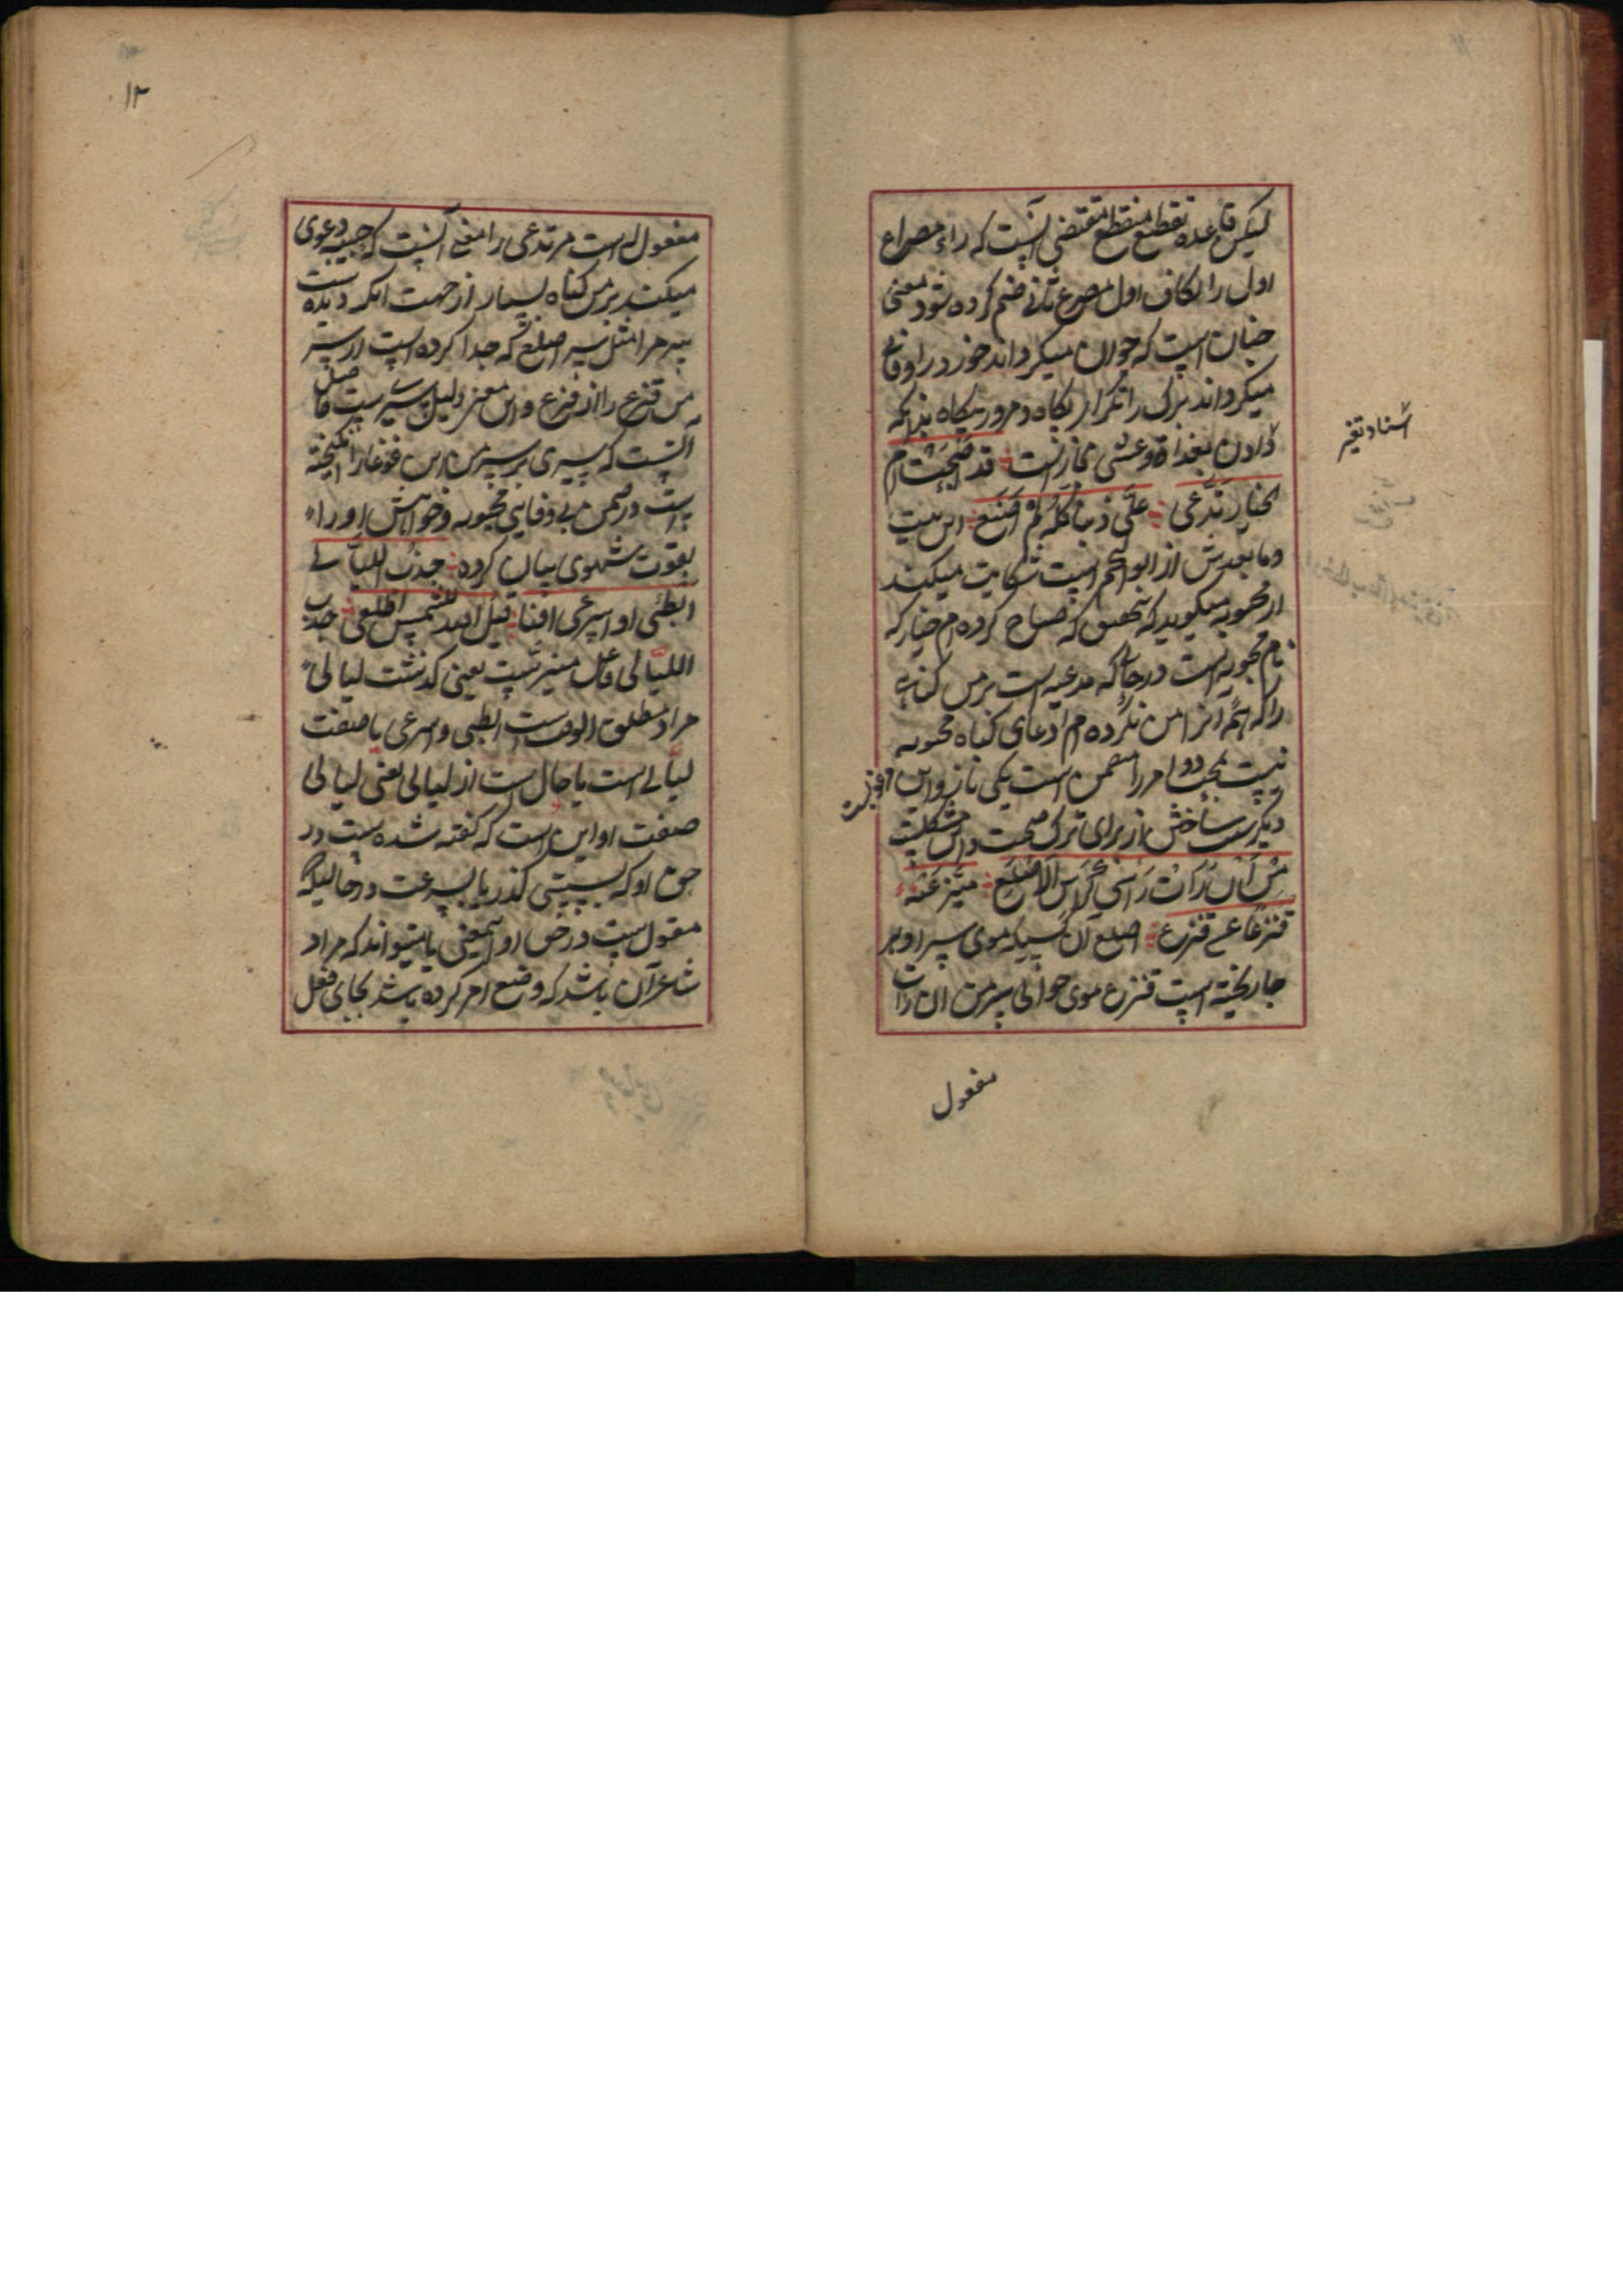 لیکن قاعده تقطیع منقطع مقتضی آنست که راء مصراع
اول را بکاف اول مصرع ثانی ضم کرده شود معنی
چنان است که جوان میگرداند خورد را و فانی
میگرداند بزرگ را تکرار پگاه و مرور بیگاه بدانکه
دادن بغداة و عشی مجازست قد اصبحت ام
الخیار تدعی علی ذنبا کله لم اصنع این بیت
وما بعدش از ابو النجم است شکایت میکند
از محبوبه میگوید که بتحقیق که صباح کرده ام خیار که
نام محبوبه است در حالیکه مدعیه است بر من گناهی
را که همه آنرا من نکرده ام ادعای گناه محبوبه
نسبت بمحب دو امر را متضمن است یکی ناز و این
دیگر ساختن از برای ترک صحبت و این مشکلیت
من ان رات راسی کراس الاصلع میز عنه
قنزعا عن قنزع اصلع آن کسیکه موی سر او بر
جا ریخته است قنزع موی حوالی سر من ان رات
مفعول
اسناد تغیر
۱۲
مفعول له است مر تدعی را معنی آنست که حبیبه دعوی
میکند بر من گناه بسیار از جهت آنکه دیده است
سر مرا مثل سر اصلع که جدا کرده است از سر
من قنزع را از قنزع و این معنی دلیل پیریست حاصل
آنست که پیری بر سر من این غوغا را انگیخته
است در ضمن بی وفایی محبوبه و خواهش او را
بقوت شهوی بیان کرده جذب اللیالی
ابطئی او اسرعی افناه قیل الله للشمس اطلعی جذب
اللیالی فاعل میز است یعنی گذشت لیالی
مراد مطلق الوقت است ابطئی و اسرعی یا صفت
لیالی است یا حال است از لیالی یعنی لیالی
صفت او این است که گفته شده است در
حق او که بسستی گذر یا بسرعت در حالیکه
مقول است در حق او اینمعنی یا میتواند که مراد
شاعر آن باشد که وضع امر کرده باشد بجای فعل